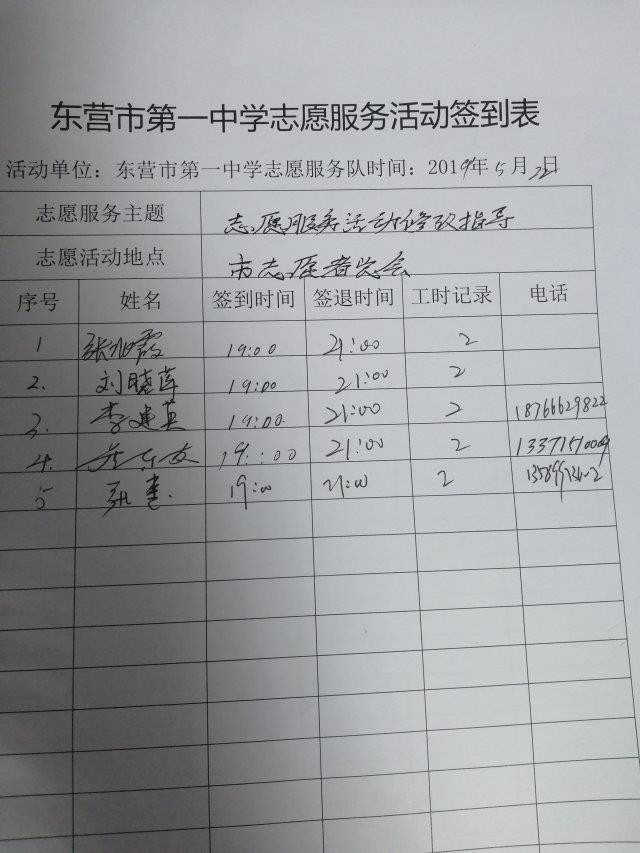 东营市第一中学志愿服务活动签到表
活动单位：东营市第一中学志愿服务队时间：2019年5月22日
志愿服务主题 志愿服务活动修改指导
志愿活动地点 市志愿者总会
序号 姓名 签到时间 签退时间 工时记录 电话
1 张旭霞 19:00 21:00 2
2. 刘晓莲 19:00 21:00 2
3. 李建英 19:00 21:00 2 18766629822
4. 19:00 21:00 2
5 19:00 21:00 2